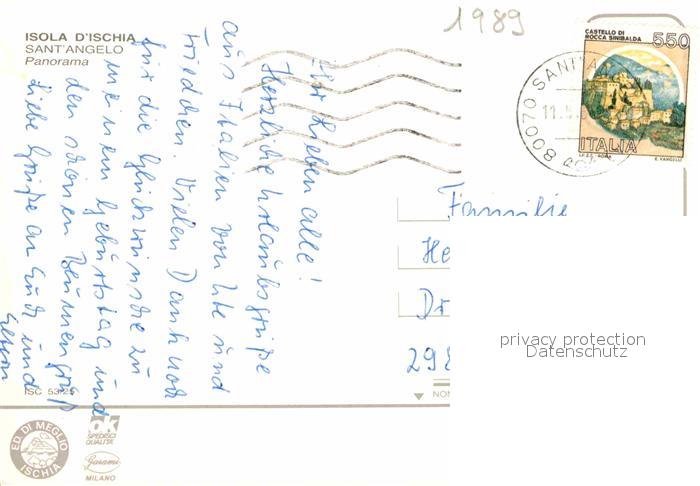 1989
ISOLA D'ISCHIA
SANT'ANGELO
Panorama
CASTELLO DI
ROCCA SINIBALDA
550
ITALIA
I.P.Z.S. ROMA
E. VANGELLI
80070 SANT'A
11.5
Ihr Lieben alle!
Herzliche Urlaubsgrüße
aus Italien von Ute und
Friedchen. Vielen Dank noch
für die Glückwünsche zu
meinem Geburtstag und
den schönen Blumengruß
Liebe Grüße an Euch und
Eltern
Familie
He
Dr
292
privacy protection
Datenschutz
ISC 53/25
NON
ED. DI MEGLIO
ISCHIA
ok
SPEDISCI
QUALITÀ
Garami
MILANO